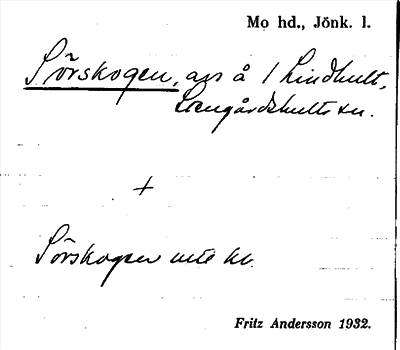 Mo hd., Jönk. l.
Sörskogen, avs å 1 Lindhult,
Stengårdshults sn.
+
Sörskogen
Fritz Andersson 1932.